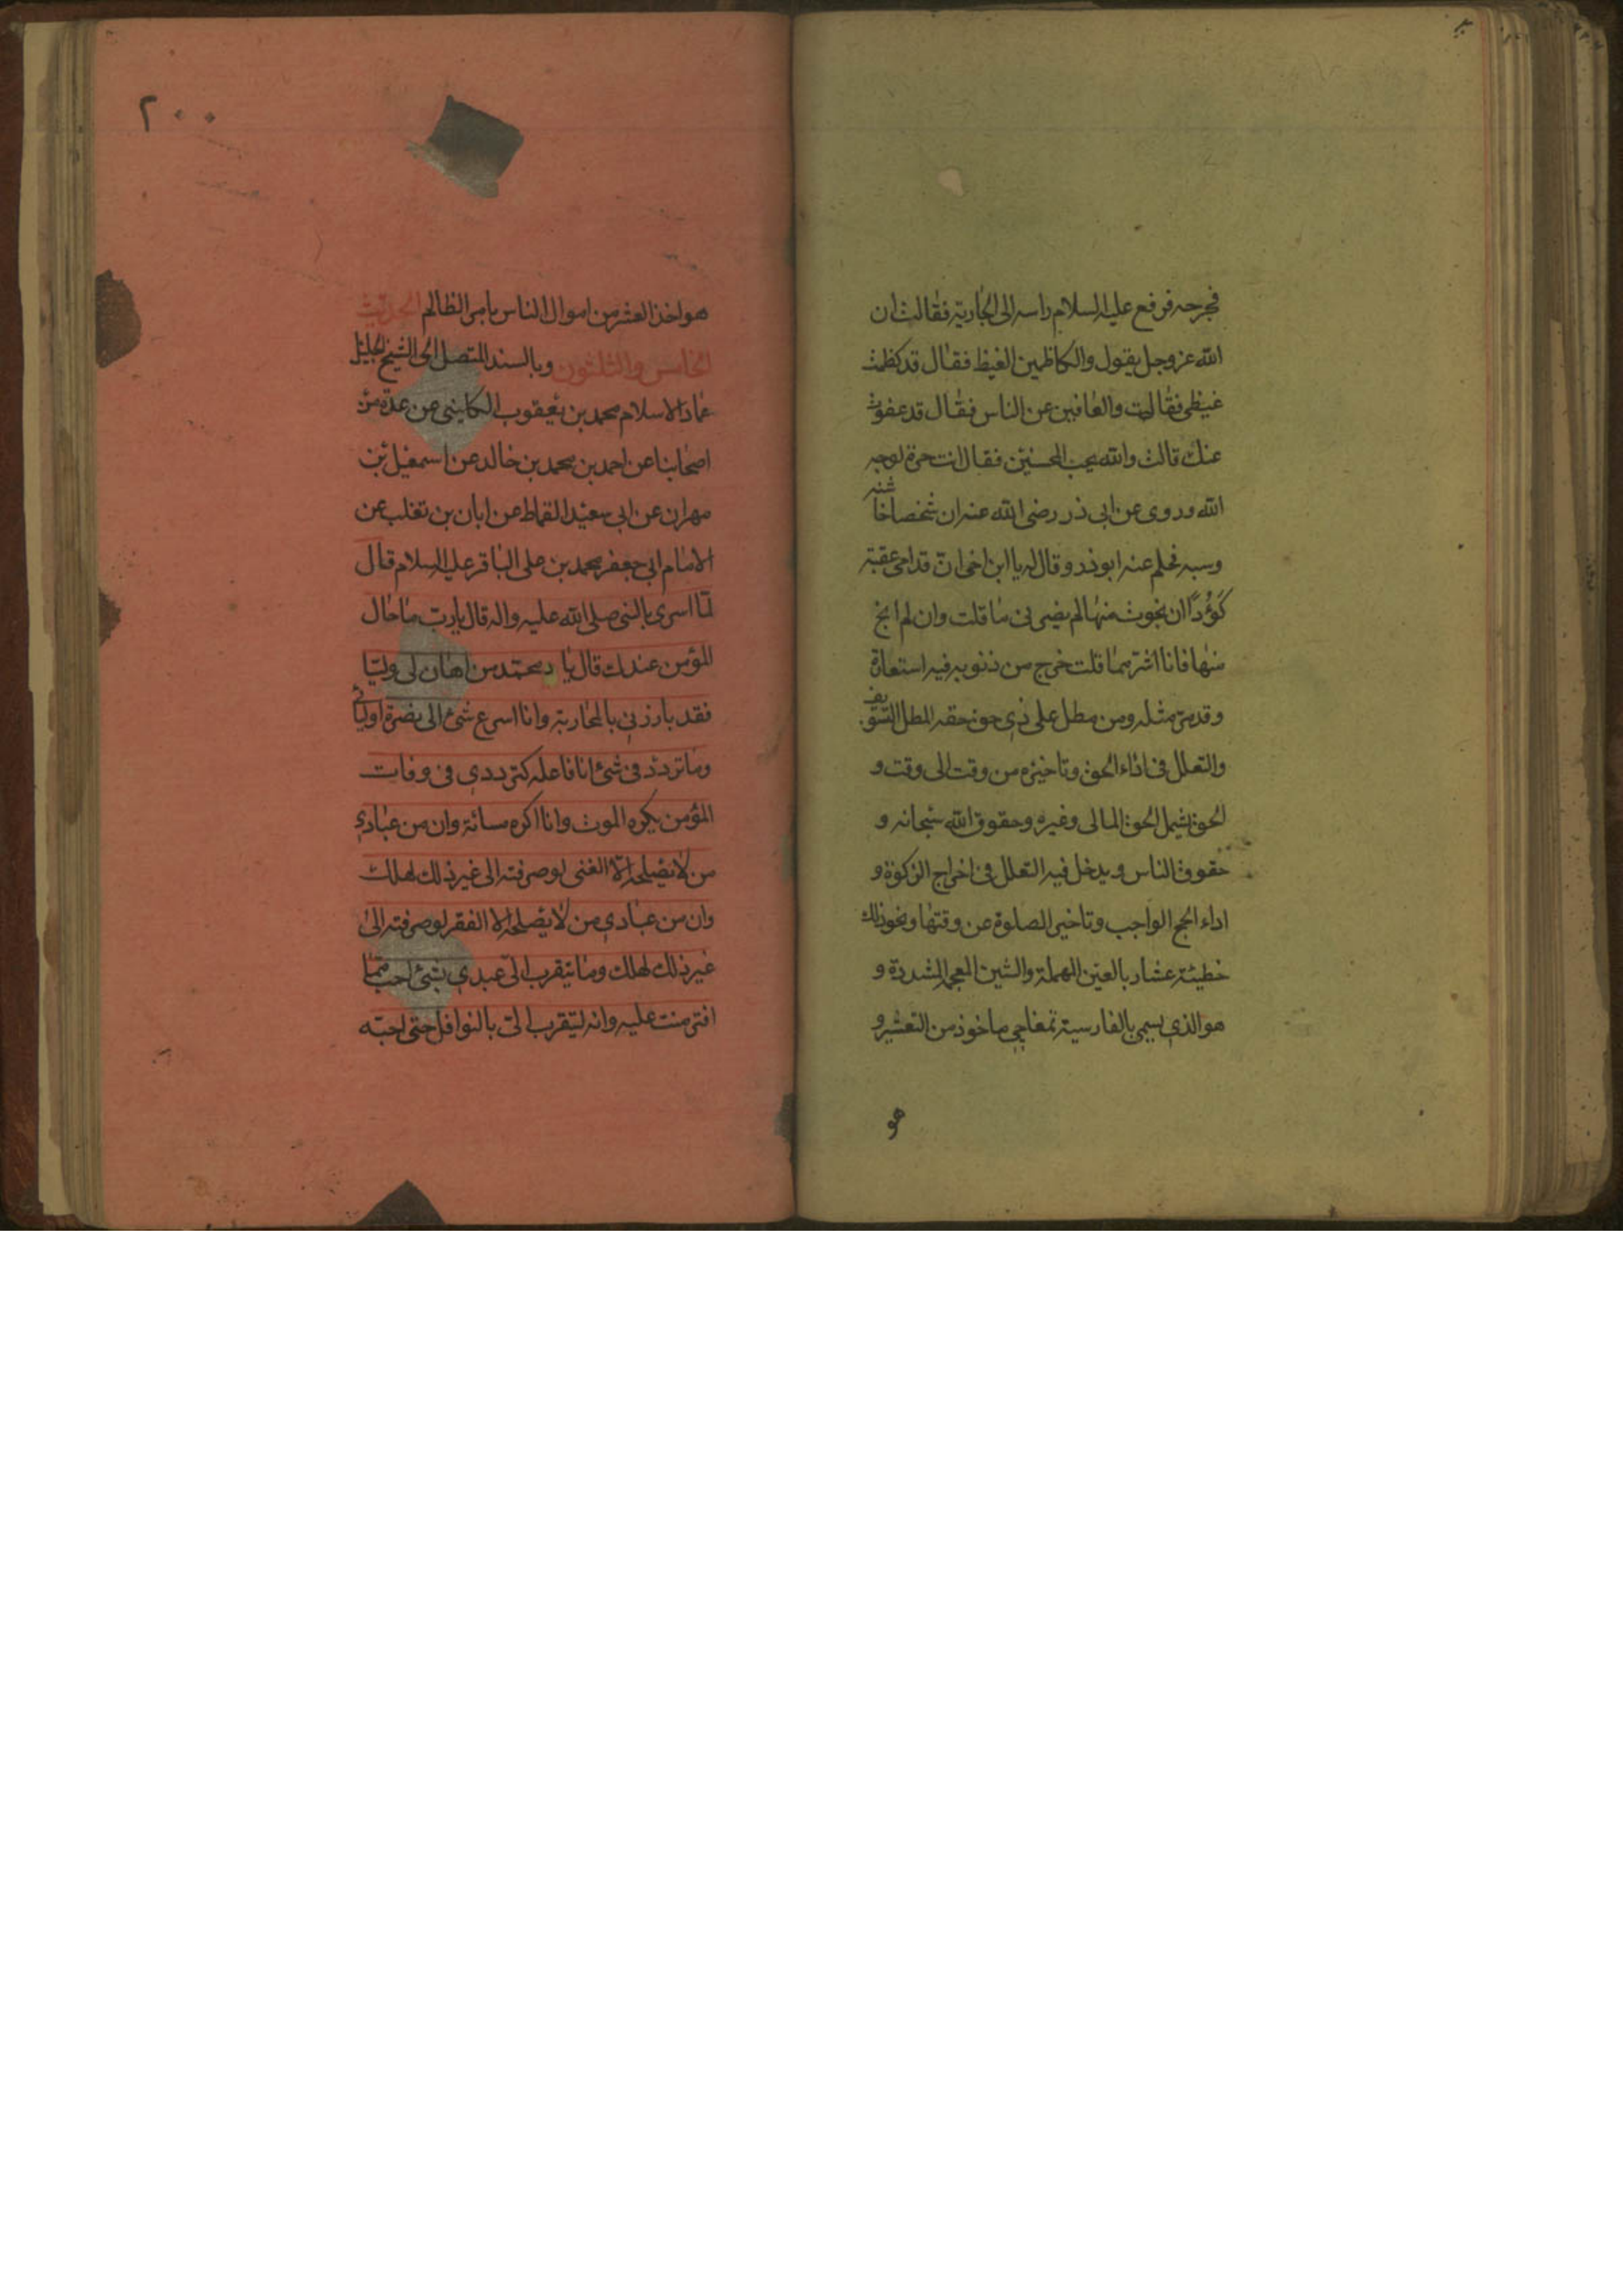 فجرحه فرفع عليه السلام راسه الى الجارية فقالت ان
الله عز وجل يقول والكاظمين الغيظ فقال قد كظمت
غيظى فقالت والعافين عن الناس فقال قد عفوت
عنك قالت والله يحب المحسنين فقال انت حرة لوجه
الله وروى عن ابى ذر رضى الله عنه ان شخصا خاشنه
وسبه فحلم عنه ابوذر وقال له يا ابن اخى ان قدامى عقبة
كؤدا ان نجوت منها لم يضرنى ما قلت وان لم انج
منها فانا اشر مما قلت خرج من ذنوبه فيه استعارة
وقد مر مثله ومن مطل على ذى حق حقه المطل التسويف
والتعلل فى اداء الحق وتاخيره من وقت الى وقت و
الحق يشمل الحق المالى وغيره وحقوق الله سبحانه و
حقوق الناس ويدخل فيه التعلل فى اخراج الزكوة و
اداء الحج الواجب وتاخير الصلوة عن وقتها ونحو ذلك
خطيئة عشار بالعين المهملة والشين المعجمة المشددة و
هو الذى يسمى بالفارسية تمغاجى ماخوذ من التعشير و
هو
٢٠٠
هو اخذ العشر من اموال الناس بامر الظالم الحديث
الخامس والثلثون وبالسند المتصل الى الشيخ الجليل
عماد الاسلام محمد بن يعقوب الكلينى عن عدة من
اصحابنا عن احمد بن محمد بن خالد عن اسمعيل بن
مهران عن ابى سعيد القماط عن ابان بن تغلب عن
الامام ابى جعفر محمد بن على الباقر عليه السلام قال
لما اسرى بالنبى صلى الله عليه واله قال يارب ما حال
المؤمن عندك قال يا محمد من اهان لى وليا
فقد بارزنى بالمحاربة وانا اسرع شئ الى نصرة اوليائى
وما تردد فى شئ انا فاعله كترددى فى وفات
المؤمن يكره الموت وانا اكره مسائة وان من عبادى
من لا يصلحه الا الغنى لو صرفته الى غير ذلك لهلك
وان من عبادى من لا يصلحه الا الفقر لو صرفته الى
غير ذلك لهلك وما يتقرب الى عبدى بشئ احب مما
افترضت عليه وانه ليتقرب الى بالنوافل حتى احبه